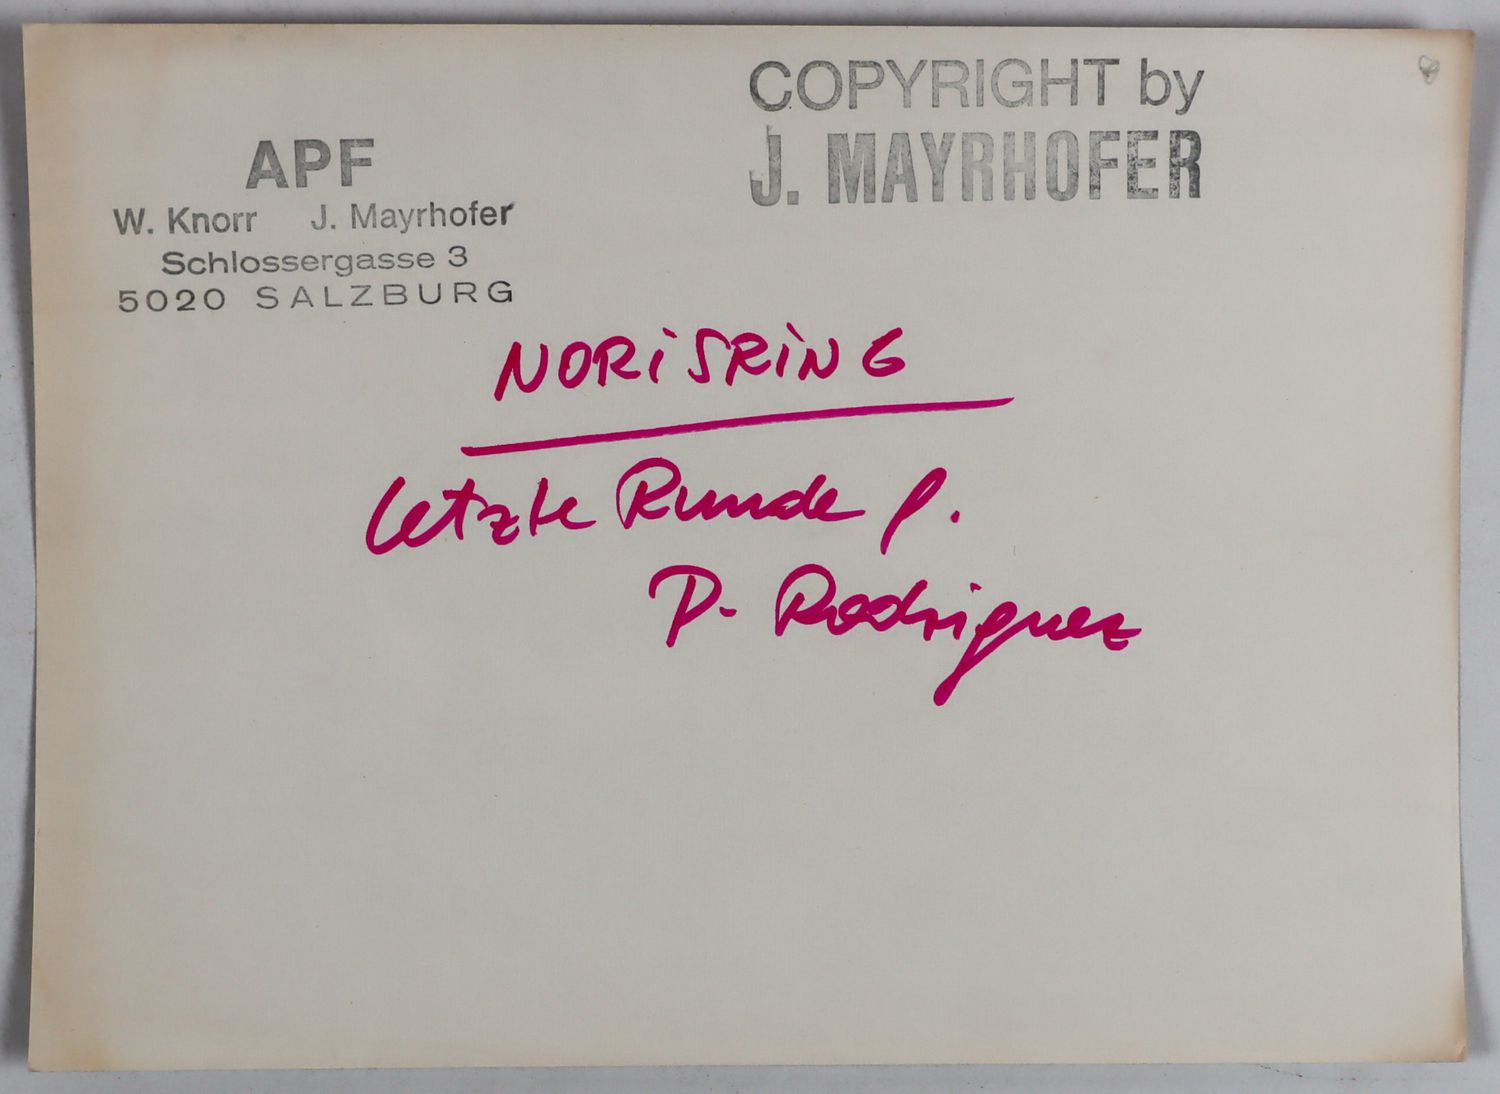 COPYRIGHT by
J. MAYRHOFER
APF
W. Knorr J. Mayrhofer
Schlossergasse 3
5020 SALZBURG
NORISRING
letzte Runde f.
P. Rodriguez